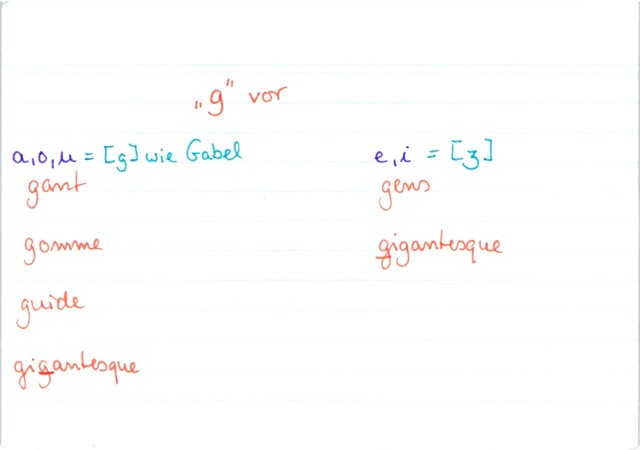 „g" vor
a,o,u = [g] wie Gabel
e,i = [ʒ]
gant
gens
gomme
gigantesque
guide
gigantesque